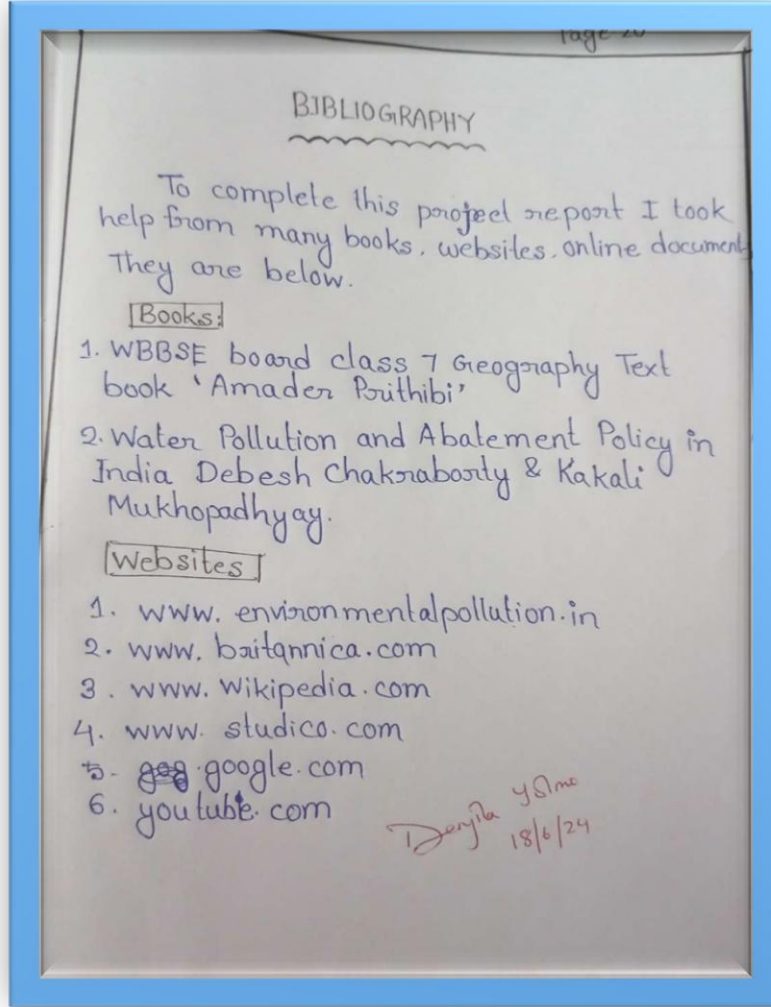 Page 20
BIBLIOGRAPHY
To complete this project report I took
help from many books, websites, online document
They are below.
Books:
1. WBBSE board class 7 Geography Text
book 'Amader Prithibi'
2. Water Pollution and Abatement Policy in
India Debesh Chakraborty & Kakali
Mukhopadhyay.
Websites
1. www. environmentalpollution.in
2. www. britannica.com
3. www. wikipedia.com
4. www. studico.com
5. google.com
6. youtube.com
18/6/24